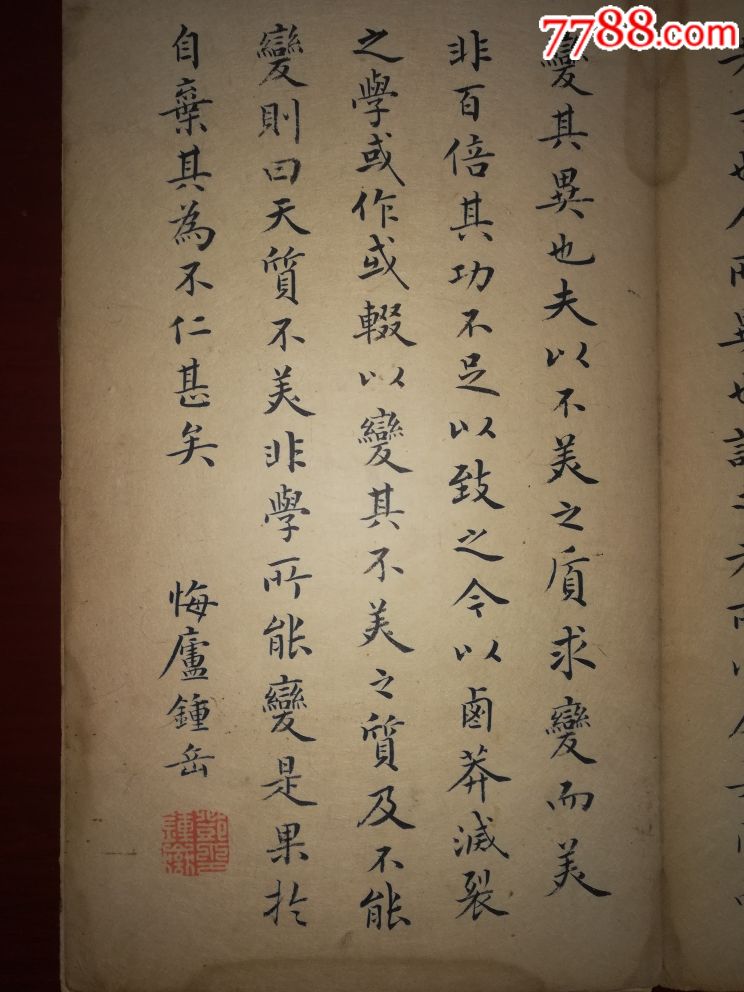 7788.com
變其異也夫以不美之質求變而美
非百倍其功不足以致之今以鹵莽滅裂
之學或作或輟以變其不美之質及不能
變則曰天質不美非學所能變是果於
自棄其為不仁甚矣
悔廬鍾岳